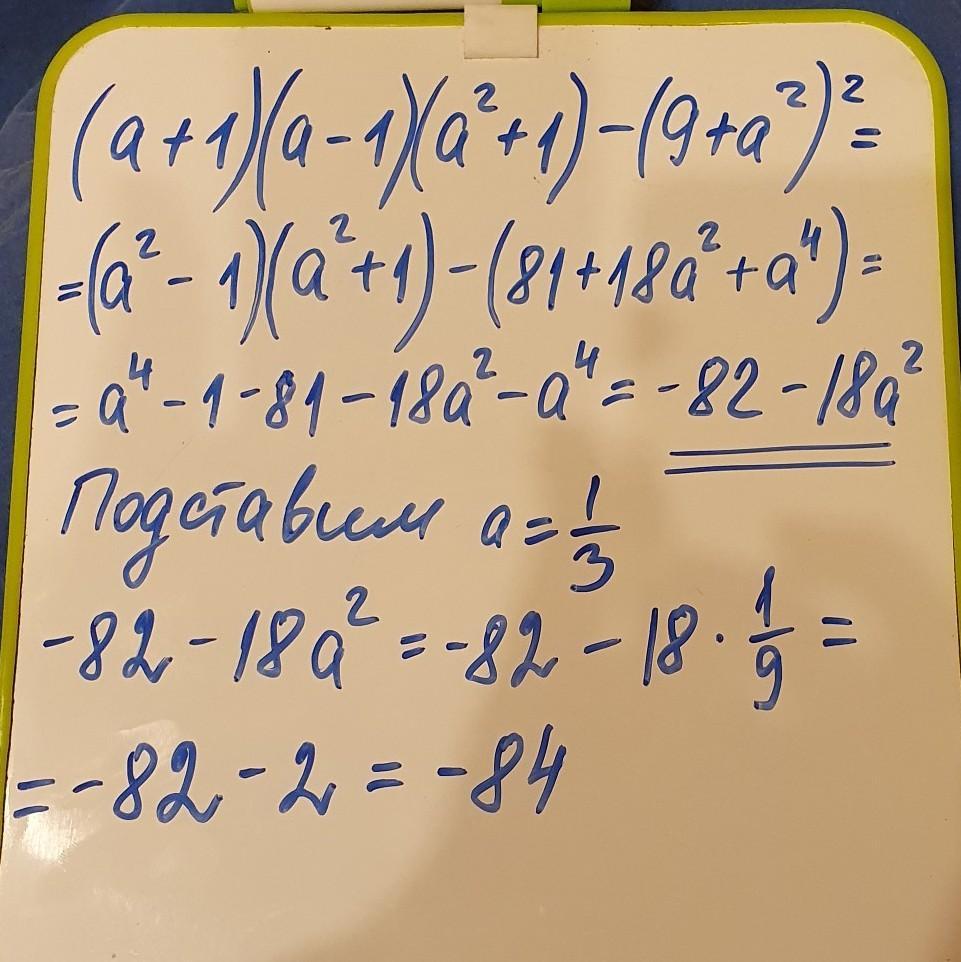 (a+1)(a-1)(a²+1)-(9+a²)²=
=(a²-1)(a²+1)-(81+18a²+a⁴)=
=a⁴-1-81-18a²-a⁴=-82-18a²
Подставим a=1/3
-82-18a²=-82-18·1/9=
=-82-2=-84